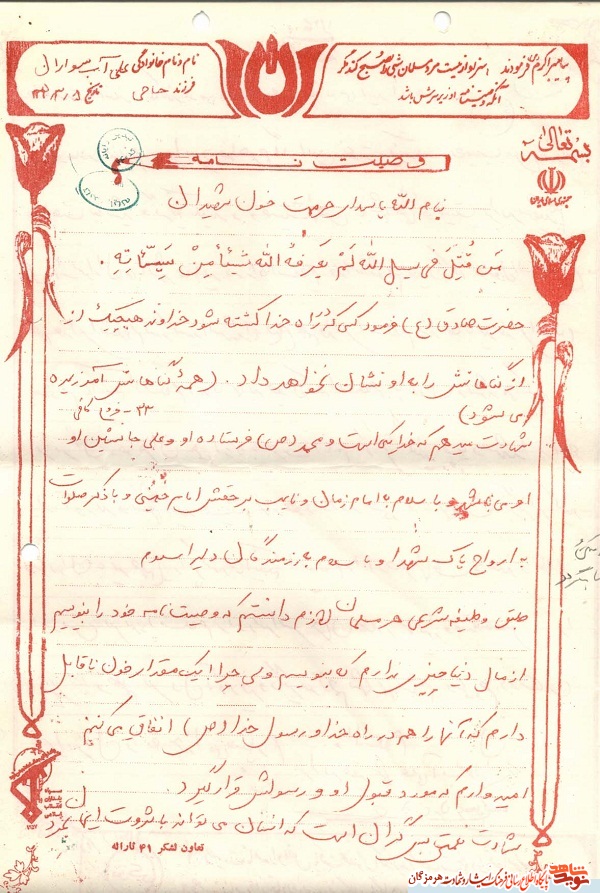 پیامبر اکرم فرمودند سزاوار نیست مرد مسلمان شبی را صبح کند مگر
آنکه وصیتنامه او زیر سرش باشد
نام و نام خانوادگی علی آب سواران
فرزند حاجی تاریخ
بسمه تعالی
جمهوری اسلامی ایران
وصیت نامه
بنام الله پاسدار حرمت خون شهیدان
مَن قُتِلَ فی سبیل الله لَم یَعرفهُ الله شیئاً مِن سَیِّئاتِهِ.
حضرت صادق (ع) فرمود کسی که در راه خدا کشته شود خداوند هیچیک از
از گناهانش را به او نشان نخواهد داد. (همهٔ گناهانش آمرزیده
می شود)
شهادت میدهم که خدا یکی است و محمد (ص) فرستاده او و علی جانشین او
او می باشد و با سلام به امام زمان و نایب برحقش امام خمینی و با ذکر صلوات
به ارواح پاک شهدا و با سلام به رزمندگان دلیر اسلام
طبق وظیفه شرعی هر مسلمان لازم دانستم که وصیت نامه خود را بنویسم
از مال دنیا چیزی ندارم که بنویسم ولی چرا یک مقدار خون ناقابل
دارم که آنها را هم در راه خدا و رسول خدا (ص) انفاق می کنم
امیدوارم که مورد قبول او و رسولش قرار گیرد
شهادت نعمتی بس گران است که انسان می تواند با ثروت ایمان بخرد
تعاون لشکر ۴۱ ثاراله
نوید شاهد
پایگاه اطلاع رسانی فرهنگ ایثار و شهادت هرمزگان